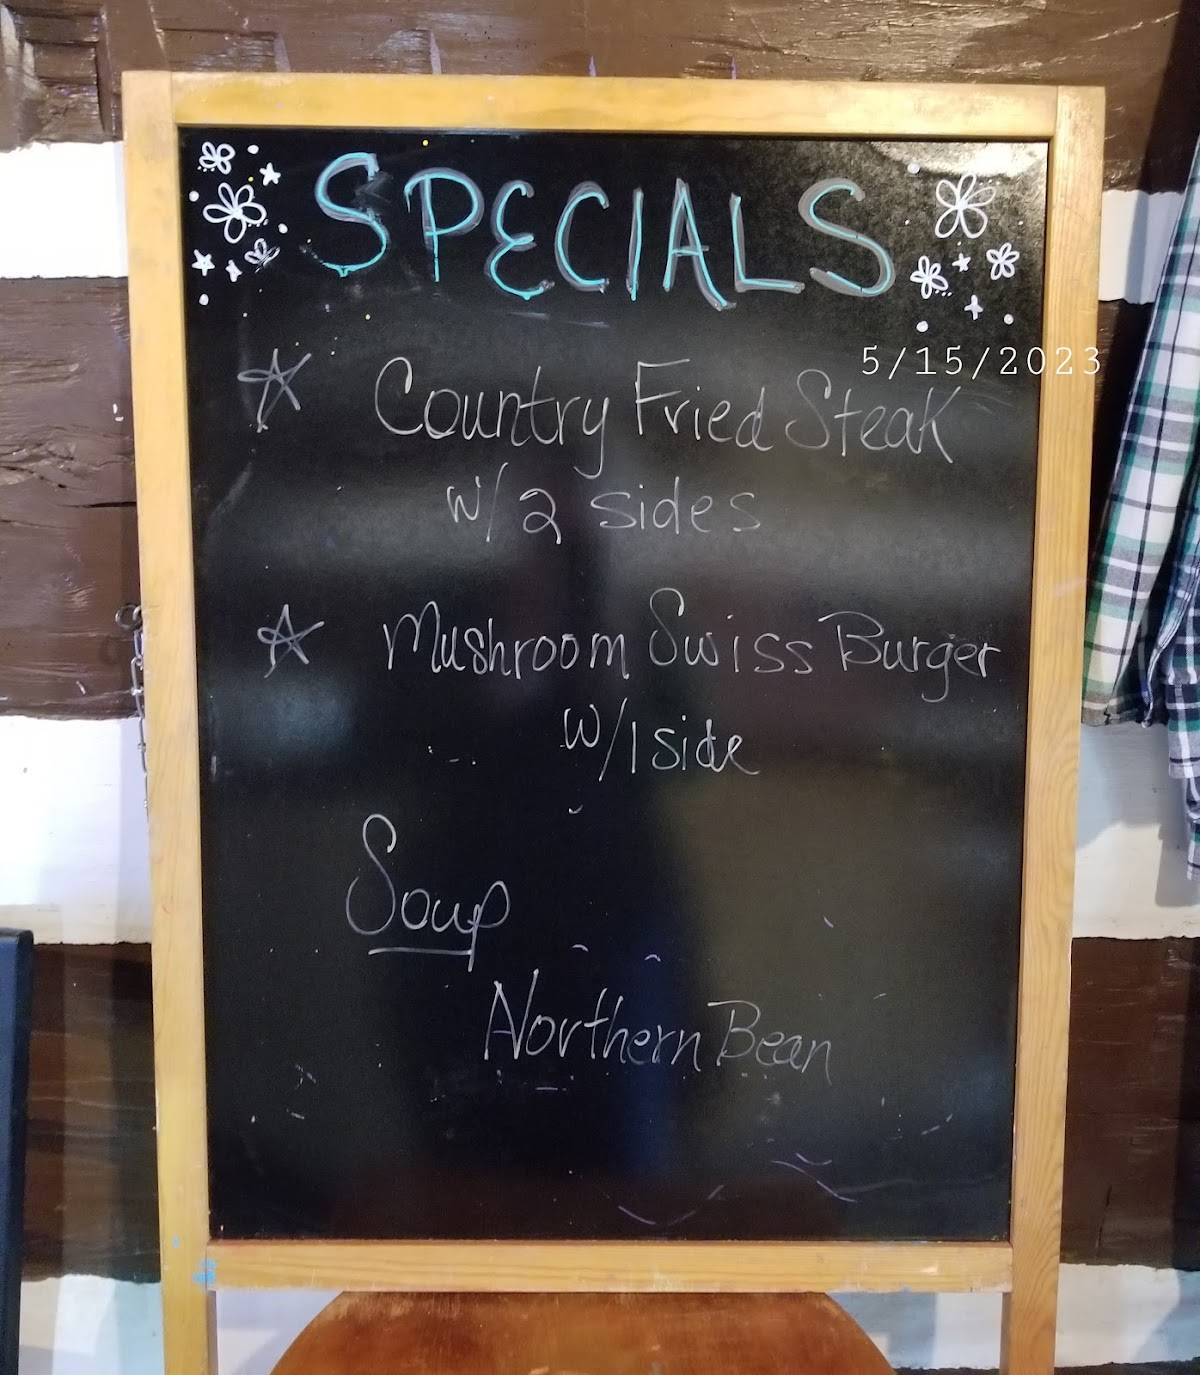 SPECIALS
5/15/2023
Country Fried Steak
w/2 sides
Mushroom Swiss Burger
w/1 side
Soup
Northern Bean